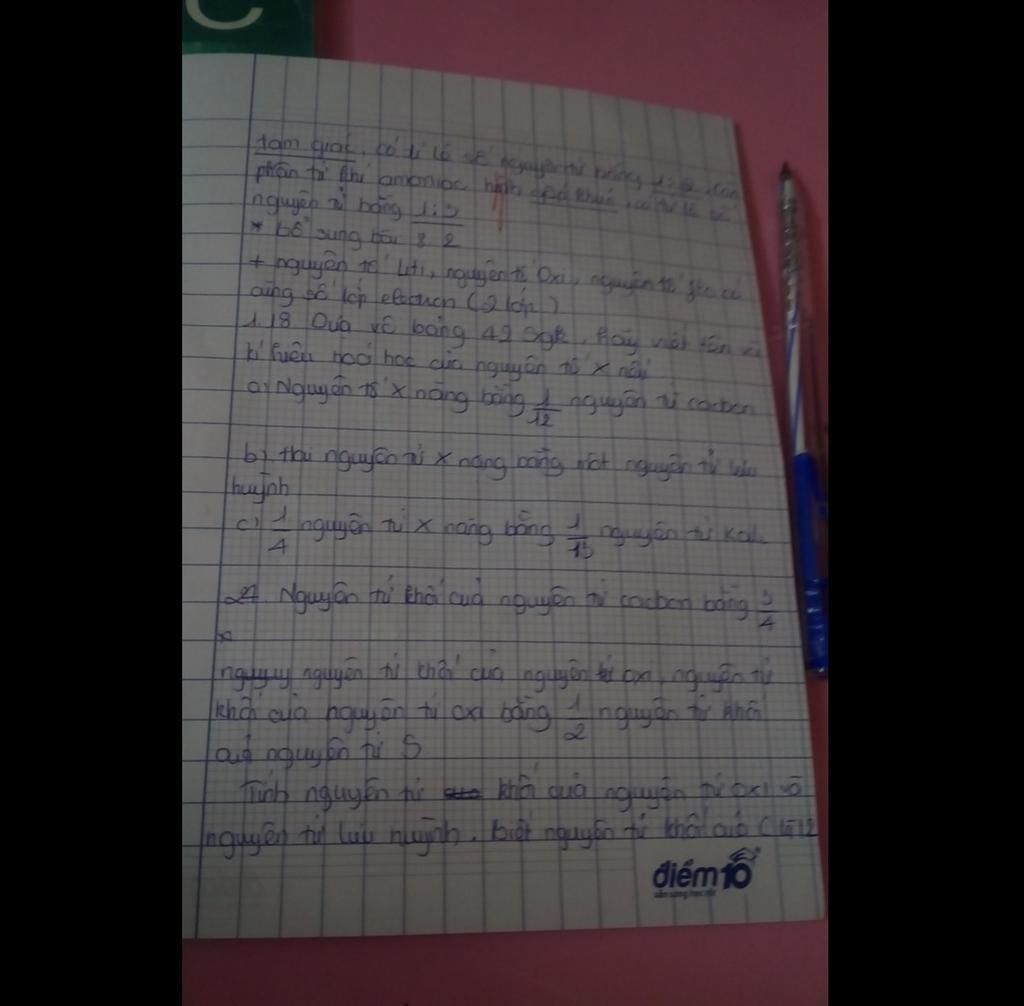 C
tam giác, có tỉ lệ số nguyên tử bằng 1:2, còn
phân tử khí amoniac hình, có tỉ lệ số
nguyên tử bằng 1:3
* bổ sung bài 8.2
+ nguyên tố Liti, nguyên tố Oxi, nguyên tố có
cùng số lớp electron (2 lớp)
1.18 Dựa vô bảng 42 sgk, Hãy viết tên và
kí hiệu hoá học của nguyên tố X nếu
a) Nguyên tố X nặng bằng 1/12 nguyên tử cacbon
b) Hai nguyên tử X nặng bằng một nguyên tử lưu
huỳnh
c) 1/4 nguyên tử X nặng bằng 1/13 nguyên tử Kali
Nguyên tử khối của nguyên tử cacbon bằng 3/4
nguyên tử khối của nguyên tử oxi, nguyên tử
khối của nguyên tử oxi bằng 1/2 nguyên tử khối
của nguyên tử S
Tính nguyên tử khối của nguyên tử oxi và
nguyên tử lưu huỳnh. biết nguyên tử khối của C là 12
điểm 10